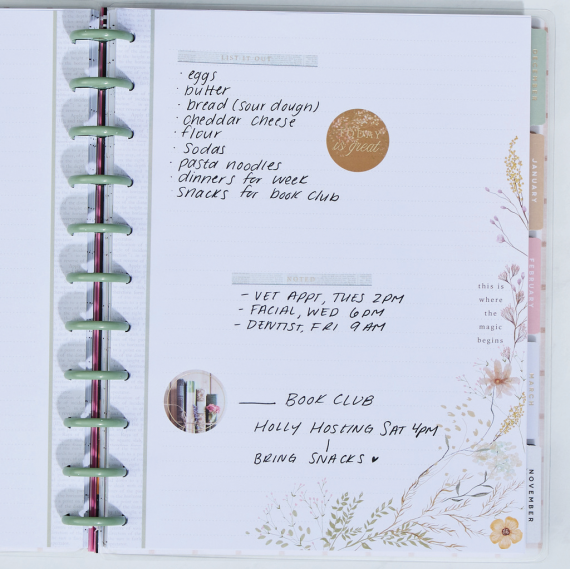 LIST IT OUT
· eggs
· butter
· bread (sour dough)
· cheddar cheese
· flour
· sodas
· pasta noodles
· dinners for week
snacks for book club
TODAY
is great
NOTES
- VET APPT, TUES 2PM
- FACIAL, WED 6PM
- DENTIST, FRI 9AM
this is
where
the
magic
begins
BOOK CLUB
HOLLY HOSTING SAT 4PM
BRING SNACKS ♥
JANUARY
FEBRUARY
MARCH
NOVEMBER